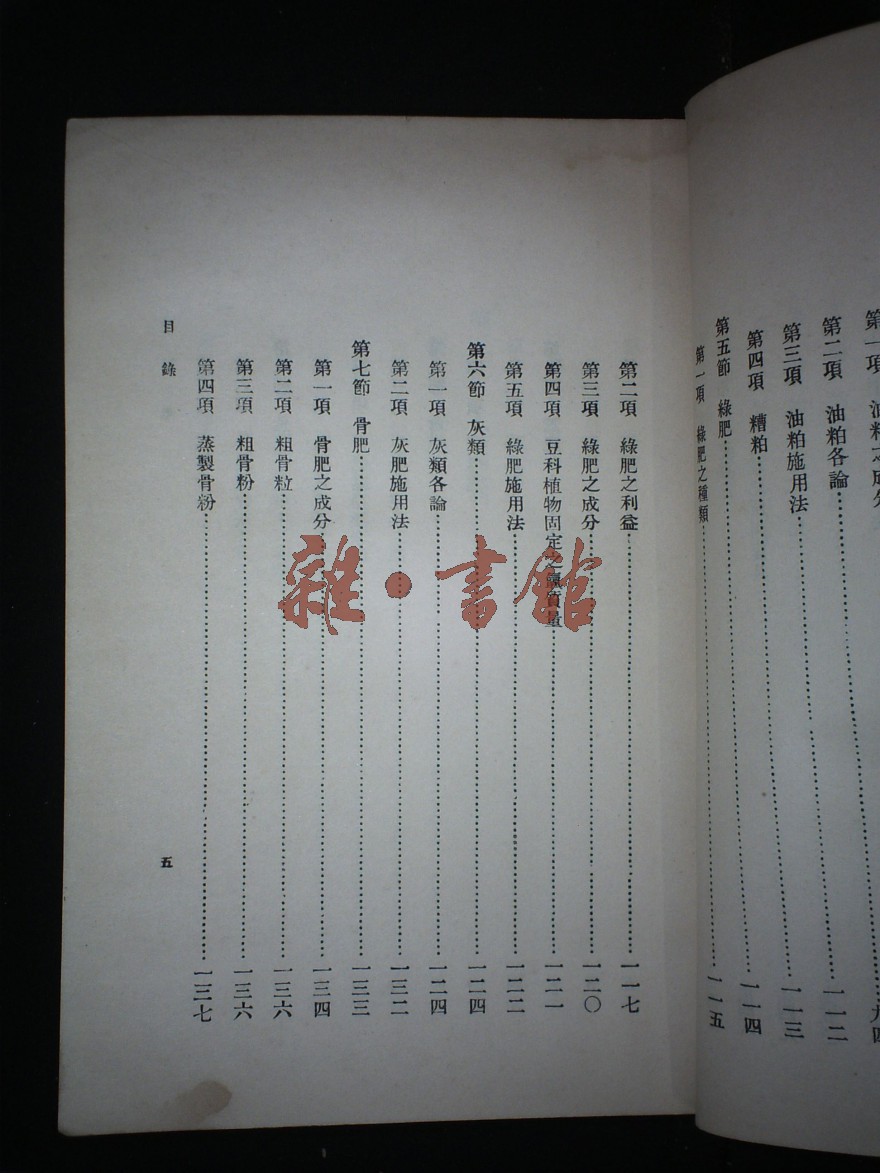 第二項 油粕各論……一一二
第三項 油粕施用法……一一三
第四項 糟粕……一一四
第五節 綠肥……一一五
第一項 綠肥之種類
第二項 綠肥之利益……一一七
第三項 綠肥之成分……一二〇
第四項 豆科植物固定之氮質量……一二一
第五項 綠肥施用法……一二二
第六節 灰類……一二四
第一項 灰類各論……一二四
第二項 灰肥施用法……一三二
第七節 骨肥……一三三
第一項 骨肥之成分……一三四
第二項 粗骨粒……一三六
第三項 粗骨粉……一三六
第四項 蒸製骨粉……一三七
目錄
五
雜·書館